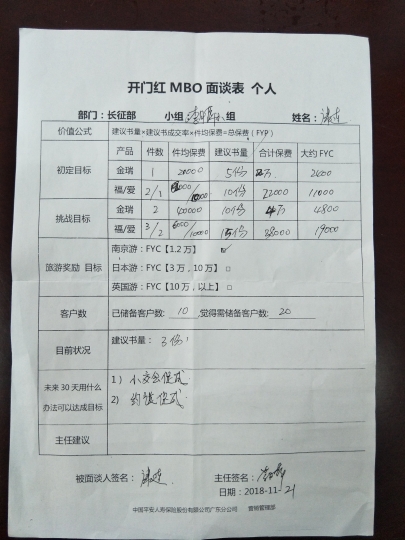 开门红 MBO 面谈表 个人
部门：长征部 小组 组 姓名：
价值公式 建议书量×建议书成交率×件均保费=总保费（FYP）
产品 件数 件均保费 建议书量 合计保费 大约 FYC
初定目标 金瑞 1 20000 5份 2万 2400
福/爱 2/1 /10000 10份 22000 11000
挑战目标 金瑞 2 40000 10份 4万 4800
福/爱 3/2 6000/10000 15份 38000 19000
南京游：FYC【1.2 万】 ☑
旅游奖励 目标 日本游：FYC【3 万，10 万】□
英国游：FYC【10 万，以上】□
客户数 已储备客户数: 10 ,觉得需储备客户数: 20
目前状况 建议书量： 3份
未来 30 天用什么办法可以达成目标 1） 小交会促成
2） 约馈促成
主任建议
被面谈人签名： 主任签名：
日期：2018-11-21
中国平安人寿保险股份有限公司广东分公司 营销管理部